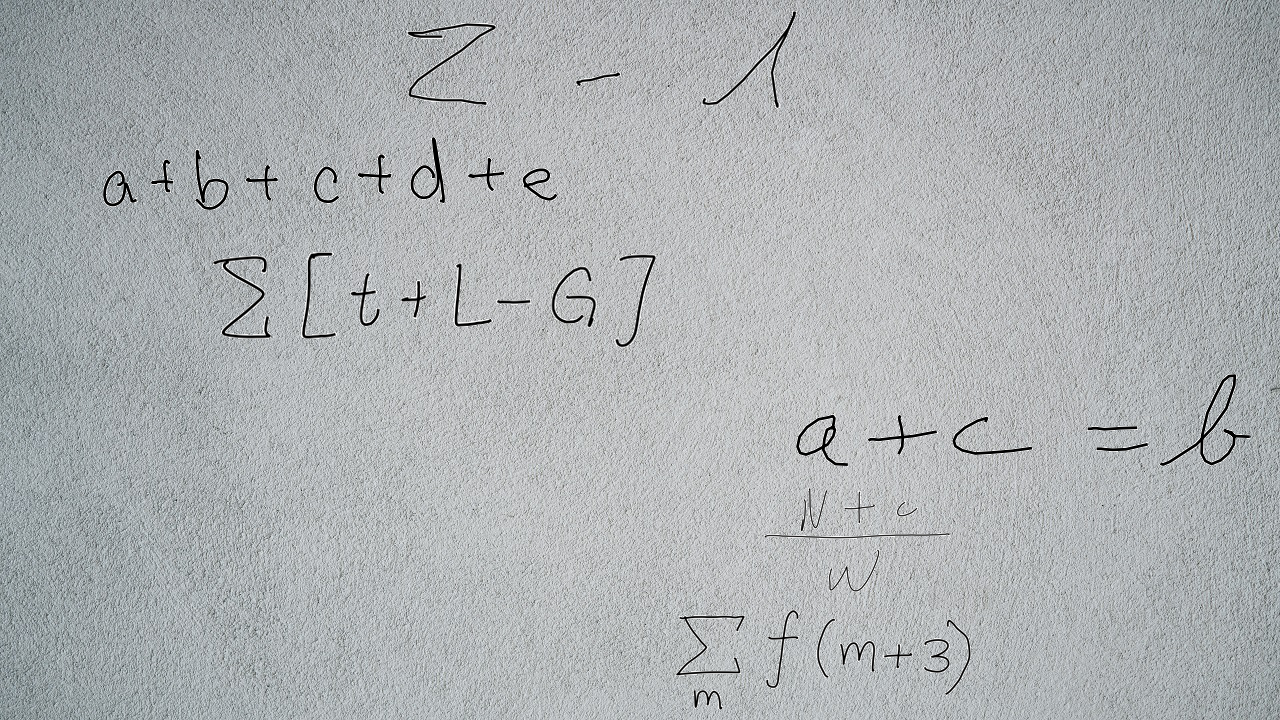 Z - 1
a+b+c+d+e
∑[t+L-G]
a+c=b
N+c
W
∑ f(m+3)
m